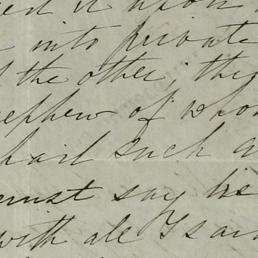 it upon
into private
the other; this
nephew of whom
hail such a
must say he
with all I said